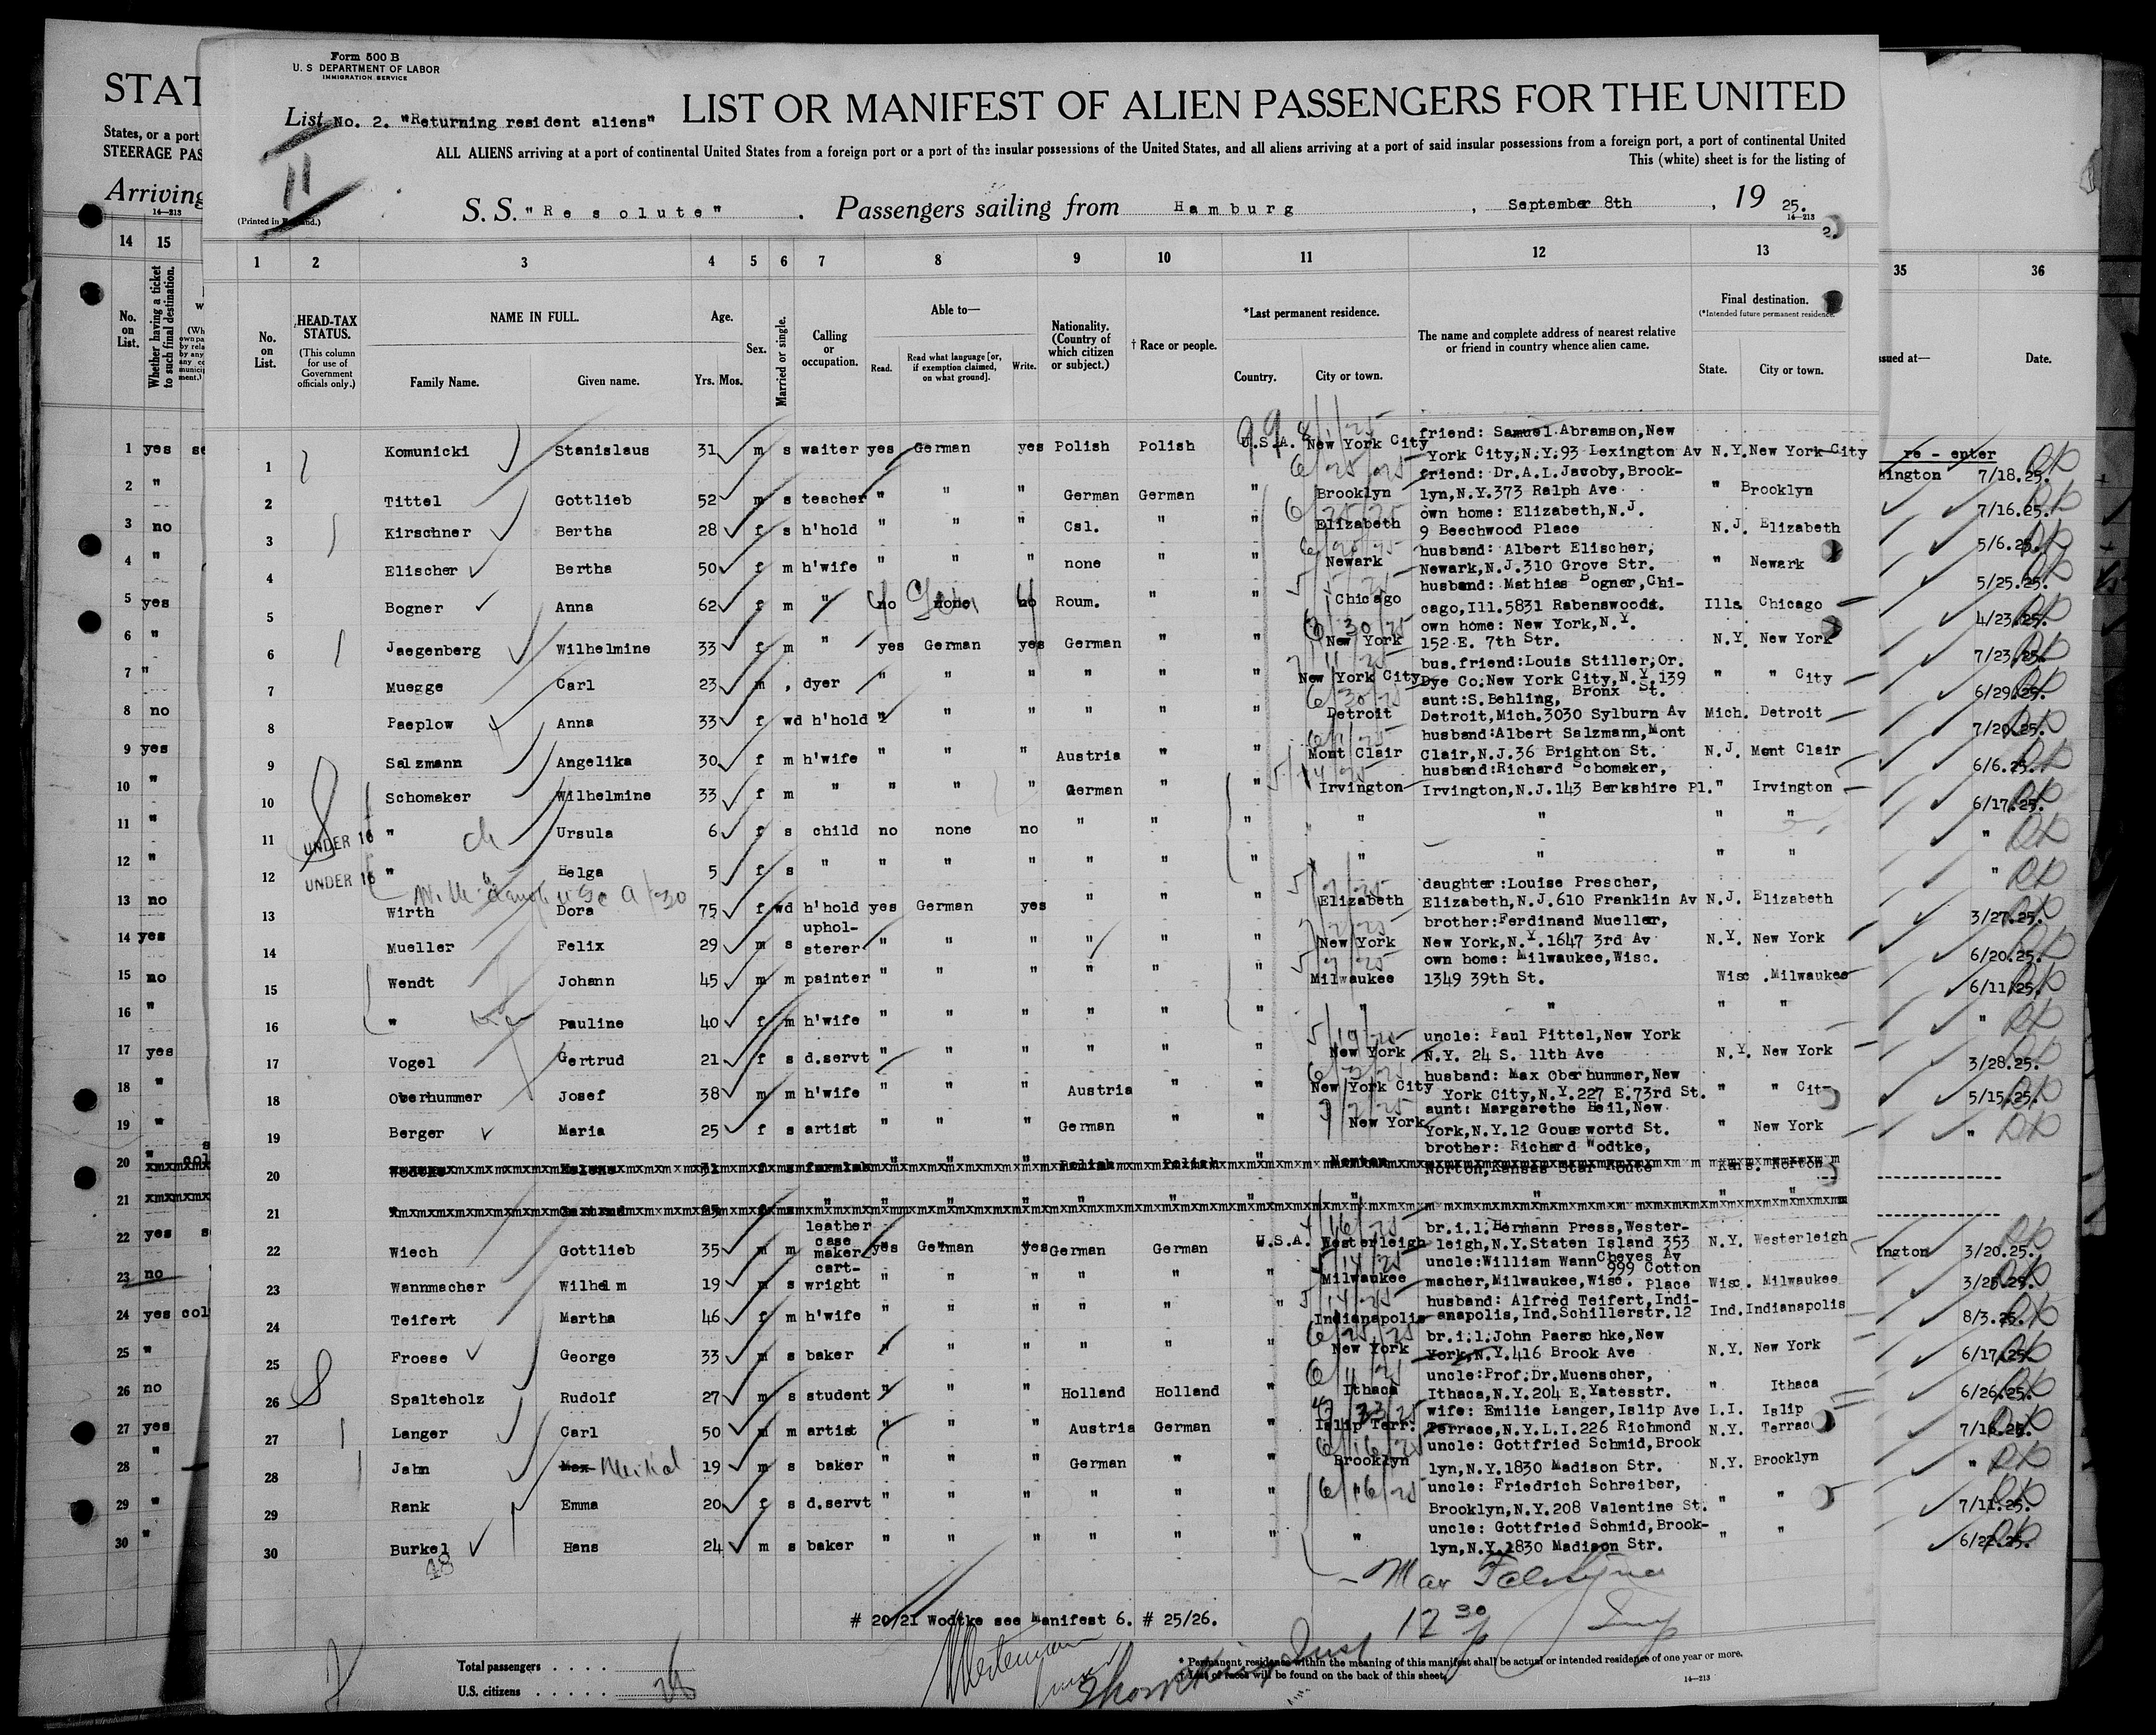 Form 500 B
U. S DEPARTMENT OF LABOR
IMMIGRATION SERVICE
STAT
List No. 2. "Returning resident aliens" LIST OR MANIFEST OF ALIEN PASSENGERS FOR THE UNITED
States, or a port
STEERAGE PAS
ALL ALIENS arriving at a port of continental United States from a foreign port or a port of the insular possessions of the United States, and all aliens arriving at a port of said insular possessions from a foreign port, a port of continental United
This (white) sheet is for the listing of
11
Arriving
14—213
(Printed in
S. S. "Resolute". Passengers sailing from Hamburg, September 8th, 19 25.
14—213
2.
14 15 1 2 3 4 5 6 7 8 9 10 11 12 13 35 36
No. on List.
Whether having a ticket to such final destination.
No. on List.
HEAD-TAX STATUS.
(This column for use of Government officials only.)
NAME IN FULL.
Family Name. Given name.
Age.
Yrs. Mos.
Sex.
Married or single.
Calling or occupation.
Able to—
Read. Read what language [or, if exemption claimed, on what ground]. Write.
Nationality. (Country of which citizen or subject.)
† Race or people.
*Last permanent residence.
Country. City or town.
The name and complete address of nearest relative or friend in country whence alien came.
Final destination.
(*Intended future permanent residence.
State. City or town.
ssued at— Date.
re - enter
1 yes 1 Komunicki Stanislaus 31 m s waiter yes German yes Polish Polish U.S.A. New York City friend: Samuel Abramson, New York City, N.Y. 93 Lexington Av N.Y. New York City ington 7/18.25.
2 " 2 Tittel Gottlieb 52 m s teacher " " " German German " Brooklyn friend: Dr. A.L. Javoby, Brook-lyn, N.Y. 373 Ralph Ave " Brooklyn 7/16.25.
3 no 3 Kirschner Bertha 28 f s h'hold " " " Csl. " " Elizabeth own home: Elizabeth, N.J. 9 Beechwood Place N.J. Elizabeth 5/6.25.
4 " 4 Elischer Bertha 50 f m h'wife " " " none " " Newark husband: Albert Elischer, Newark, N.J. 310 Grove Str. " Newark 5/25.25.
5 yes 5 Bogner Anna 62 f m " no none no Roum. " " Chicago husband: Mathias Bogner, Chi-cago, Ill. 5831 Rabenswoodt. Ills Chicago 4/23.25.
6 " 6 Jaegenberg Wilhelmine 33 f m " yes German yes German " " New York own home: New York, N.Y. 152 E. 7th Str. N.Y. New York 7/23.25.
7 " 7 Muegge Carl 23 m , dyer " " " " " " New York City bus. friend: Louis Stiller, Or. Dye Co. New York City, N.Y. 139 Bronx St. " " City 6/29.25.
8 no 8 Paeplow Anna 33 f wd h'hold " " " " " " Detroit aunt: S. Behling, Detroit, Mich. 3030 Sylburn Av Mich. Detroit 7/20.25.
9 yes 9 Salzmann Angelika 30 f m h'wife " " " Austria " " Mont Clair husband: Albert Salzmann, Mont Clair, N.J. 36 Brighton St. N.J. Mont Clair 6/6.25.
10 " 10 Schomaker Wilhelmine 33 f m " " " " German " " Irvington husband: Richard Schomaker, Irvington, N.J. 143 Berkshire Pl. " Irvington 6/17.25.
11 " 11 UNDER 16 " ch Ursula 6 f s child no none no " " " " " " " "
12 " 12 UNDER 16 " Helga 5 f s " " " " " " " " " " " "
13 no 13 Wirth Dora 75 f wd h'hold yes German yes " " " Elizabeth daughter: Louise Prescher, Elizabeth, N.J. 610 Franklin Av N.J. Elizabeth 3/27.25.
14 yes 14 Mueller Felix 29 m s uphol-sterer " " " " " " New York brother: Ferdinand Mueller, New York, N.Y. 1647 3rd Av N.Y. New York 6/20.25.
15 no 15 Wendt Johann 45 m m painter " " " " " " Milwaukee own home: Milwaukee, Wisc. 1349 39th St. Wisc . Milwaukee 6/11.25.
16 " 16 " Pauline 40 f m h'wife " " " " " " " " " " "
17 yes 17 Vogel Gertrud 21 f s d.servt " " " " " " New York uncle: Paul Pittel, New York N.Y. 24 S. 11th Ave N.Y. New York 3/28.25.
18 " 18 Oberhummer Josef 38 m m h'wife " " " Austria " " New York City husband: Max Oberhummer, New York City, N.Y. 227 E. 73rd St. " " Cit 5/15.25.
19 " 19 Berger Maria 25 f s artist " " " German " " New York aunt: Margarethe Heil, New York, N.Y. 12 Gousewortd St. " New York "
20 " col 20 Wodtke Helene 31 f s " " " Polish Polish " Norton brother: Richard Wodtke, Norton, Kansas Star Route Kans. Norton
21 21 " Gertrud f s " " " " " " " " " " "
22 yes 22 Wiech Gottlieb 35 m m leather case maker yes German yes German German U.S.A. Westerleigh br.i.l. Hermann Press, Wester-leigh, N.Y. Staten Island 353 Cheves Av N.Y. Westerleigh ington 3/20.25.
23 no 23 Wannmacher Wilhelm 19 m s cart-wright " " " " " " Milwaukee uncle: William Wann 999 Cotton macher, Milwaukee, Wisc. Place Wisc. Milwaukee 3/25.25.
24 yes col 24 Teifert Martha 46 f m h'wife " " " " " " Indianapolis husband: Alfred Teifert, Indi-anapolis, Ind. Schillerstr. 12 Ind. Indianapolis 8/3.25.
25 " 25 Froese George 33 m s baker " " " " " " New York br.i.l. John Paerschke, New York, N.Y. 416 Brook Ave N.Y. New York 6/17.25.
26 no 26 Spalteholz Rudolf 27 m s student " " " Holland Holland " Ithaca uncle: Prof. Dr. Muenscher, Ithaca, N.Y. 204 E. Yatesstr. " Ithaca 6/26.25.
27 yes 27 Langer Carl 50 m m artist " " " Austria German " Islip Terr. wife: Emilie Langer, Islip Ave Terrace, N.Y. L.I. 226 Richmond L.I. N.Y. Islip Terrac 7/18.25.
28 " 28 Jahn Max 19 m s baker " " " German " " Brooklyn uncle: Gottfried Schmid, Brook lyn, N.Y. 1830 Madison Str. N.Y. Brooklyn "
29 " 29 Rank Emma 20 f s d.servt " " " " " " 6/16/25 uncle: Friedrich Schreiber, Brooklyn, N.Y. 208 Valentine St. " " 7/11.25.
30 " 30 Burkel Hans 24 m s baker " " " " " " " uncle: Gottfried Schmid, Brook-lyn, N.Y. 1830 Madison Str. " " 6/22.25.
48
# 20/21 Wodtke see Manifest 6. # 25/26.
12 30 p
Total passengers . . . .
U.S. citizens . . . . .
* Permanent residence within the meaning of this manifest shall be actual or intended residence of one year or more.
† List of races will be found on the back of this sheet.
14—213